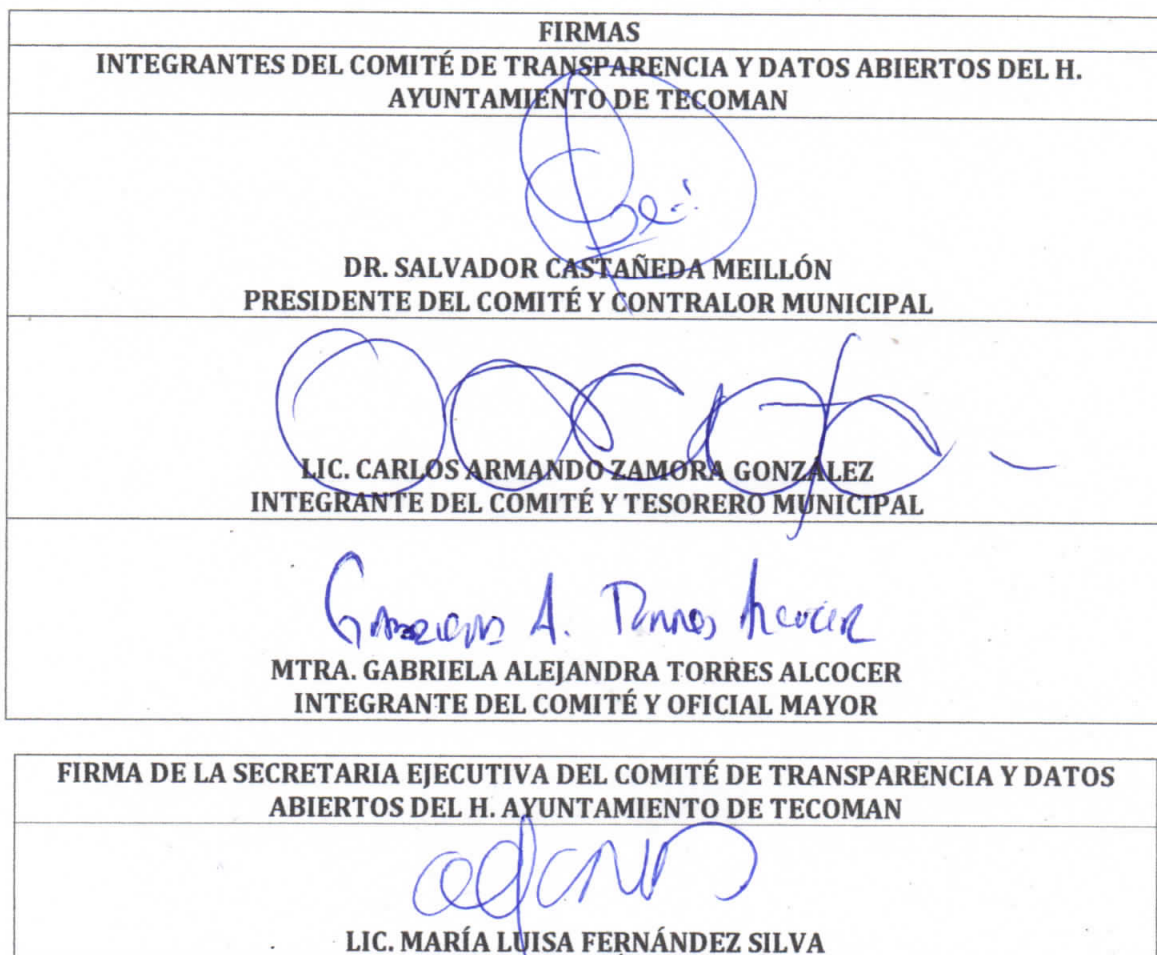 FIRMAS
INTEGRANTES DEL COMITÉ DE TRANSPARENCIA Y DATOS ABIERTOS DEL H.
AYUNTAMIENTO DE TECOMAN
DR. SALVADOR CASTAÑEDA MEILLÓN
PRESIDENTE DEL COMITÉ Y CONTRALOR MUNICIPAL
LIC. CARLOS ARMANDO ZAMORA GONZÁLEZ
INTEGRANTE DEL COMITÉ Y TESORERO MUNICIPAL
Gabriela A. Torres Alcocer
MTRA. GABRIELA ALEJANDRA TORRES ALCOCER
INTEGRANTE DEL COMITÉ Y OFICIAL MAYOR
FIRMA DE LA SECRETARIA EJECUTIVA DEL COMITÉ DE TRANSPARENCIA Y DATOS
ABIERTOS DEL H. AYUNTAMIENTO DE TECOMAN
LIC. MARÍA LUISA FERNÁNDEZ SILVA